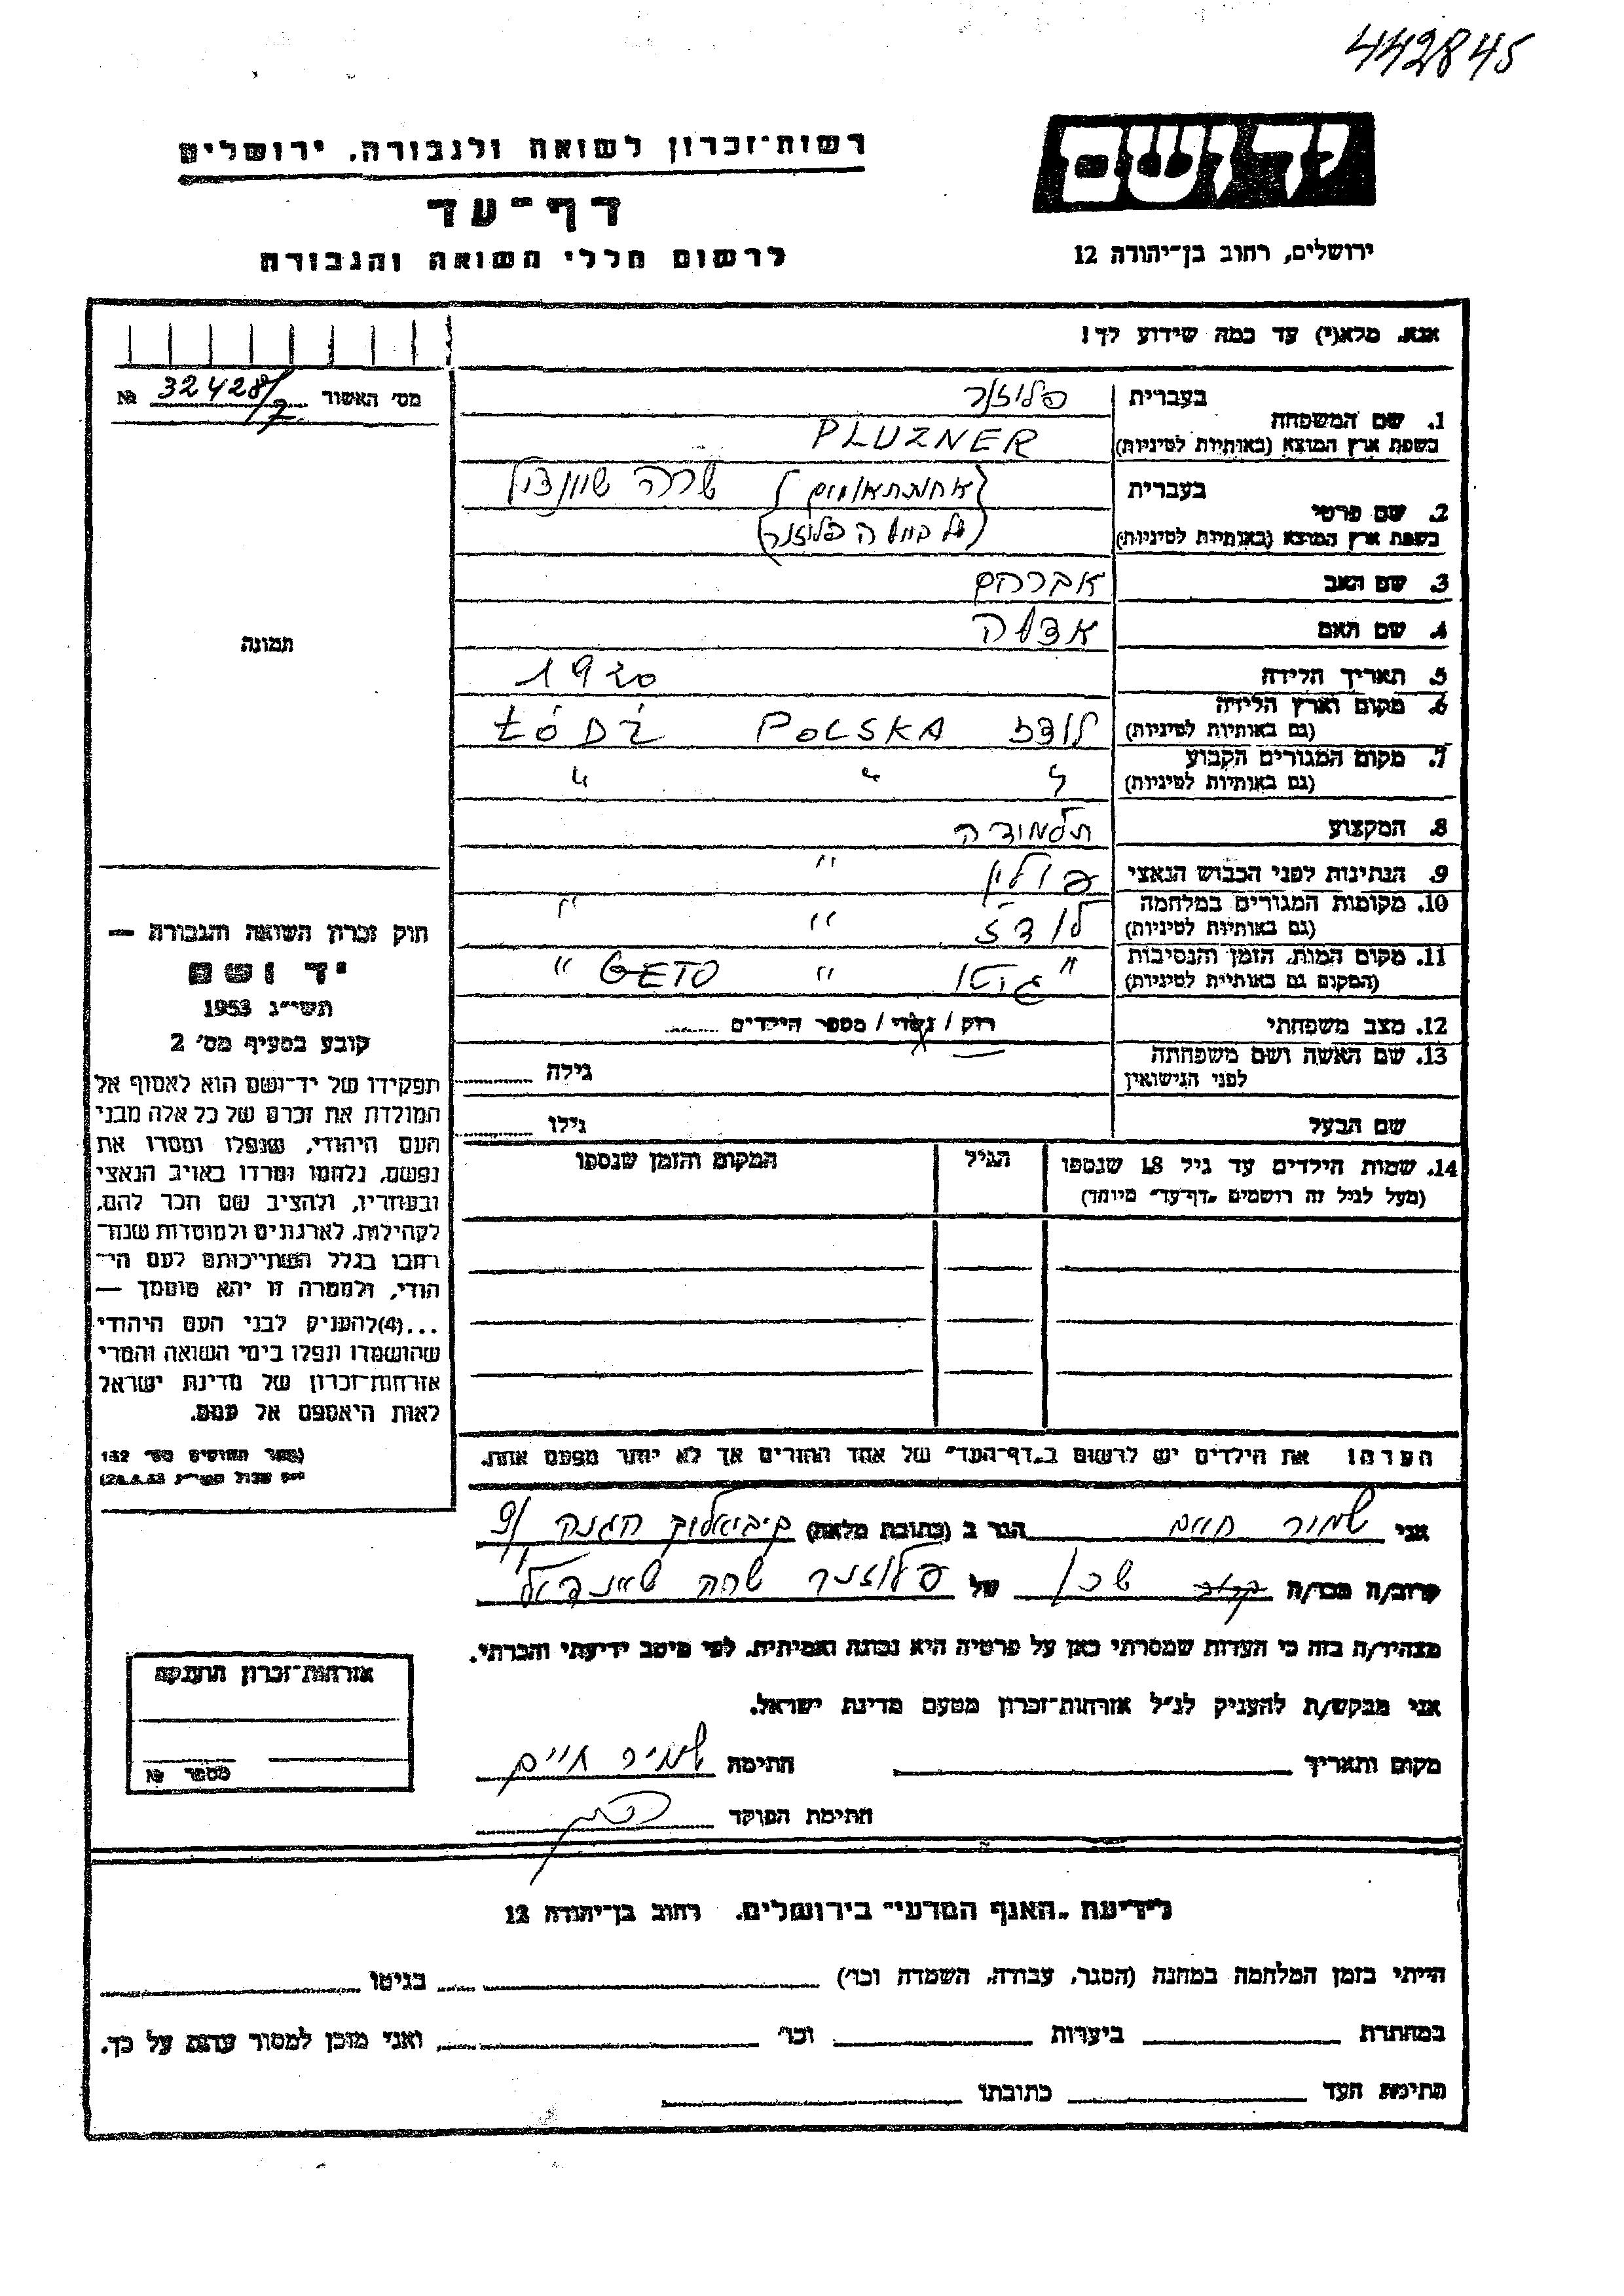 442845
יד ושם
ירושלים, רחוב בן־יהודה 12
רשות־זכרון לשואה ולגבורה, ירושלים
דף־עד
לרשום חללי השואה והגבורה
אנא, מלא(י) עד כמה שידוע לך!
מס׳ האשור 32428/ №
1. שם המשפחה
בעברית פלוזנר
בשפת ארץ המוצא (באותיות לטיניות) PLUZNER
2. שם פרטי
בעברית שרה
בשפת ארץ המוצא (באותיות לטיניות) פלוזנר)
3. שם האב אברהם
4. שם האם
5. תאריך הלידה 1920
6. מקום וארץ הלידה
(גם באותיות לטיניות) לודז POLSKA ŁÓDŹ
7. מקום המגורים הקבוע
(גם באותיות לטיניות) " " "
8. המקצוע תלמידה
9. הנתינות לפני הכבוש הנאצי פולין "
10. מקומות המגורים במלחמה
(גם באותיות לטיניות) לודז " "
11. מקום המות, הזמן והנסיבות
(המקום גם באותיות לטיניות) " גטו " GETO "
12. מצב משפחתי רוק / נשוי / מספר הילדים
13. שם האשה ושם משפחתה
לפני הנישואין גילה
שם הבעל גילו
14. שמות הילדים עד גיל 18 שנספו הגיל המקום והזמן שנספו
(מעל לגיל זה רושמים „דף־עד" מיוחד)
הערה: את הילדים יש לרשום ב„דף־העד" של אחד ההורים אך לא יותר מפעם אחת.
תמונה
חוק זכרון השואה והגבורה —
יד ושם
תשי״ג 1953
קובע בסעיף מס׳ 2
תפקידו של יד־ושם הוא לאסוף אל
המולדת את זכרם של כל אלה מבני
העם היהודי, שנפלו ומסרו את
נפשם, נלחמו ומרדו באויב הנאצי
ובעוזריו, ולהציב שם וזכר להם,
לקהילות, לארגונים ולמוסדות שנח־
רבו בגלל השתייכותם לעם הי־
הודי, ולמטרה זו יהא מוסמך —
...(4)להעניק לבני העם היהודי
שהושמדו ונפלו בימי השואה והמרי
אזרחות־זכרון של מדינת ישראל
לאות היאספם אל עמם.
(ספר החוקים מס׳ 132
28.8.53)
אני שמיר חיים הגר ב (כתובת מלאה) קיביאליק חגנה
קרוב/ה מכר/ה שכן של פלוזנר שרה
מצהיר/ה בזה כי העדות שמסרתי כאן על פרטיה היא נכונה ואמיתית, לפי מיטב ידיעתי והכרתי.
אני מבקש/ת להעניק לנ״ל אזרחות־זכרון מטעם מדינת ישראל.
מקום ותאריך חתימה שמיר חיים
חתימת הפוקד
אזרחות־זכרון הוענקה
מספר №
לידיעת „האגף המדעי" בירושלים, רחוב בן־יהודה 12
הייתי בזמן המלחמה במחנה (הסגר, עבודה, השמדה וכו׳) בגיטו
במחתרת ביערות וכו׳ ואני מוכן למסור עדות על כך.
חתימת העד כתובתו